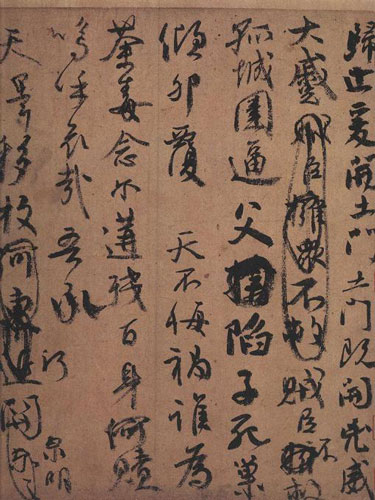 歸止爰開土門土門既開凶威
大蹙賊臣擁眾不救賊臣不擁救
孤城圍逼父擒陷子死巢
傾卵覆天不悔禍誰為
荼毒念爾遘殘百身何贖
嗚呼哀哉吾承
泉明
天澤移牧河東近關